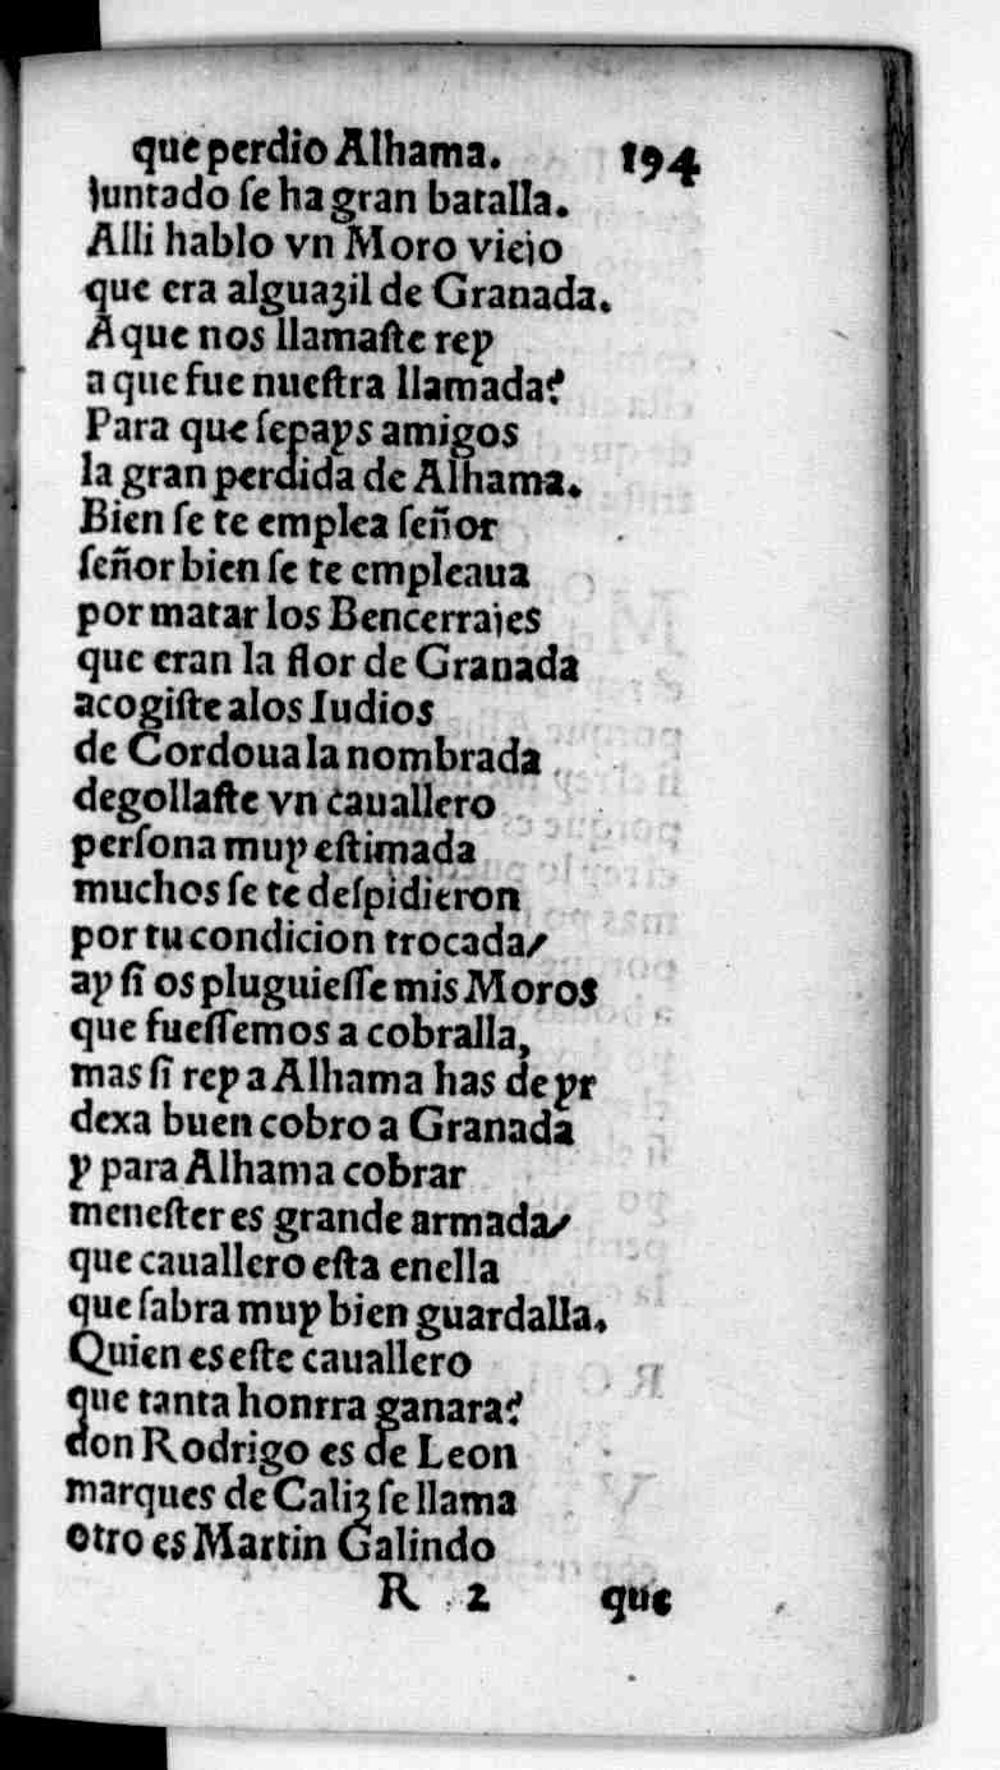 que perdio Alhama. 194
Juntado ſe ha gran batalla.
Alli hablo vn Moro viejo
que era alguazil de Granada.
A que nos llamaſte rey
a que fue nueſtra llamada?
Para que ſepays amigos
la gran perdida de Alhama.
Bien ſe te emplea ſeñor
ſeñor bien ſe te empleaua
por matar los Bencerrajes
que eran la flor de Granada
acogiſte alos Iudios
de Cordoua la nombrada
degollaſte vn cauallero
perſona muy eſtimada
muchos ſe te deſpidieron
por tu condicion trocada/
ay ſi os pluguieſſe mis Moros
que fueſſemos a cobralla,
mas ſi rey a Alhama has de yr
dexa buen cobro a Granada
y para Alhama cobrar
meneſter es grande armada/
que cauallero eſta enella
que ſabra muy bien guardalla.
Quien es eſte cauallero
que tanta honrra ganara?
don Rodrigo es de Leon
marques de Caliz ſe llama
otro es Martin Galindo
R 2 que